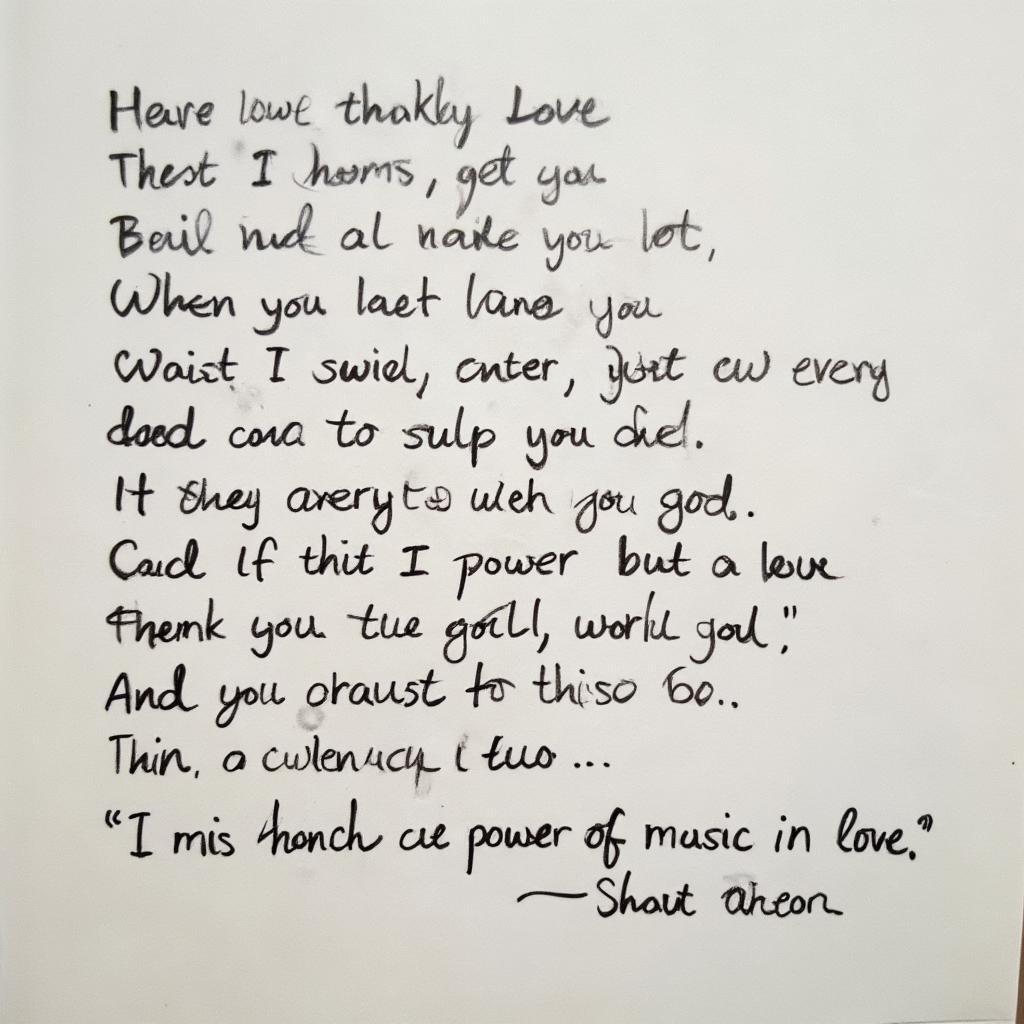 Heare lowe thakly Love
Thest I hooms, get you
Beail nud al naike you lot,
When you laet lane you
Waist I swiel, cnter, just cw every
doed cona to sulp you died.
It they avery to uleh you god.
Caud If thit I power but a leve
themk you tue goill, workl goul,"
And you oraust to thiso 6o..
Thin, a cwlenucy i tuo ...
"I mis thonch cue power of music in love."
—Shaut aheon